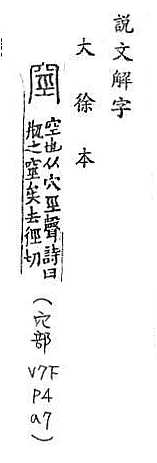 説文解字
大徐本
空也从穴巠聲詩曰
瓶之矣去徑切
(穴部 V7F P4 a7)